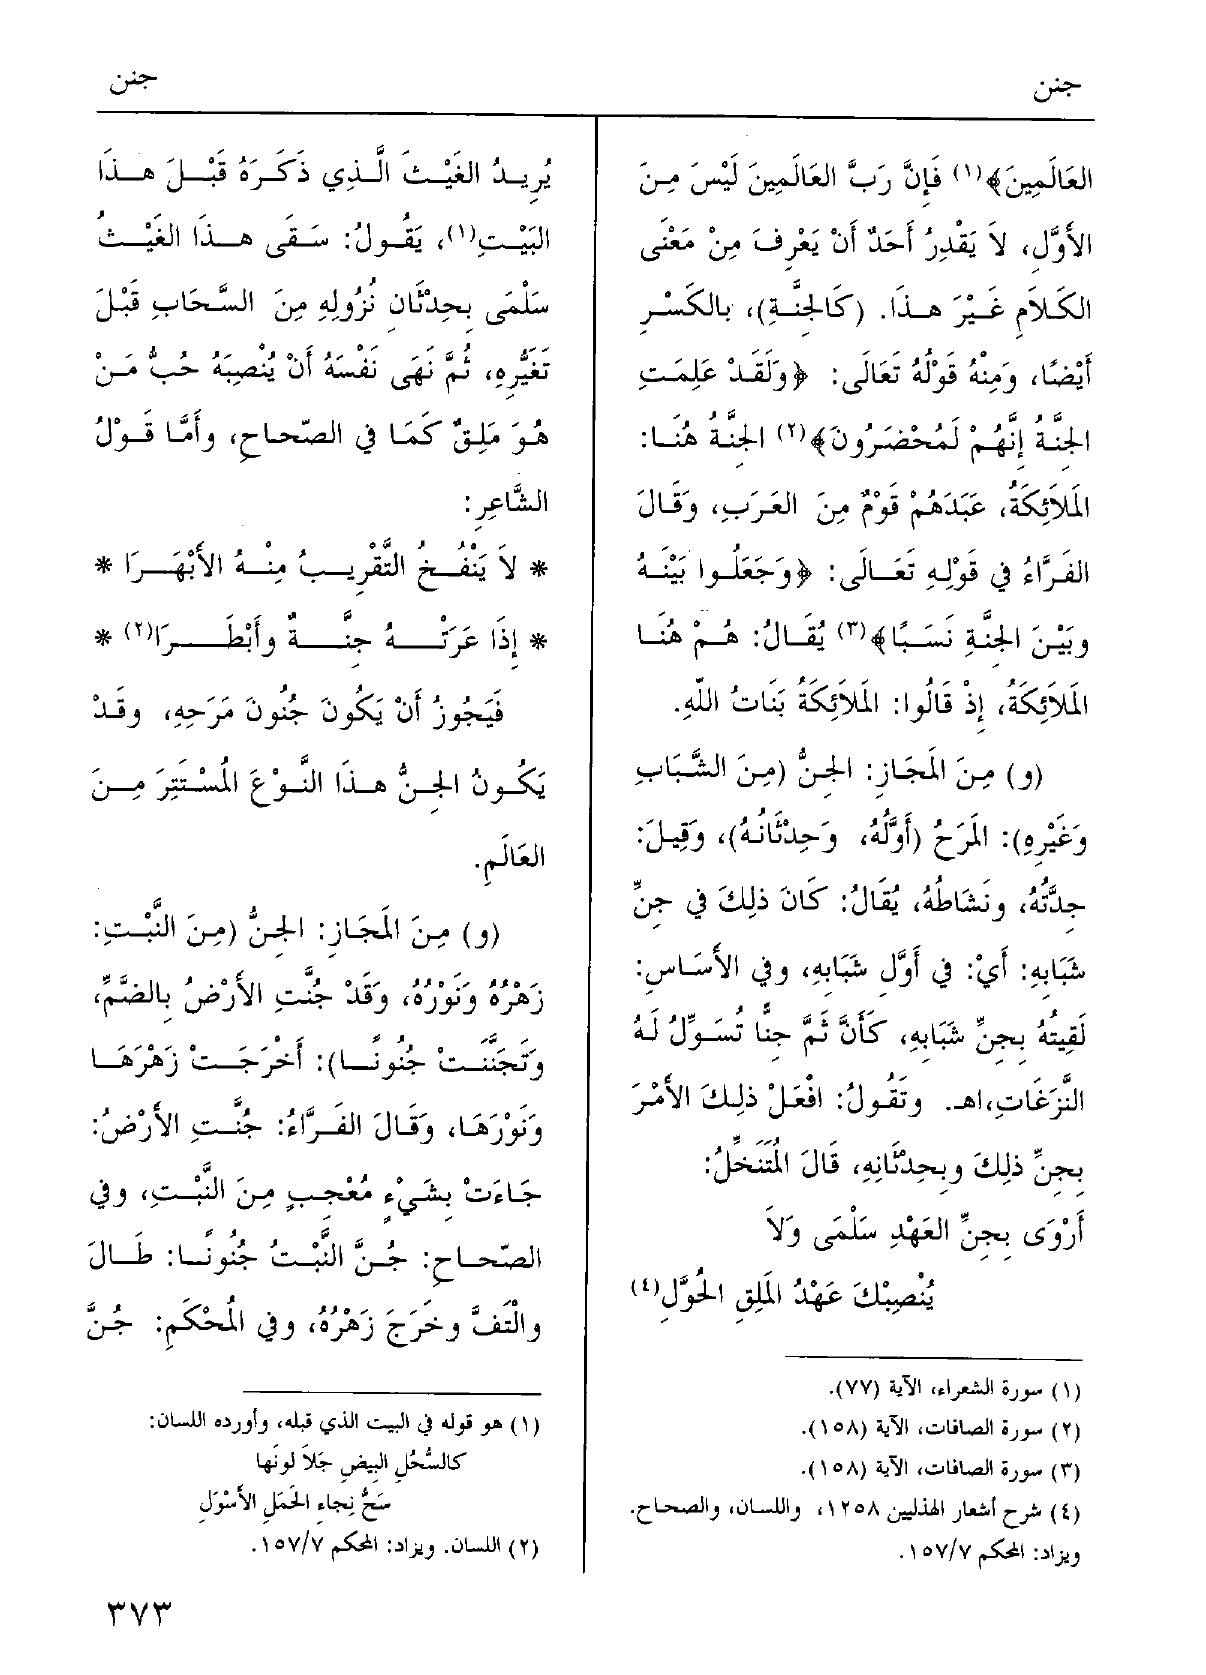 جنن
جنن
العَالَمِينَ﴾(١) فَإِنَّ رَبَّ العَالَمِينَ لَيْسَ مِنَ
الأَوَّلِ، لاَ يَقْدِرُ أَحَدٌ أَنْ يَعْرِفَ مِنْ مَعْنَى
الكَلاَمِ غَيْرَ هَذَا. (كَالجِنَّةِ)، بالكَسْرِ
أَيْضًا، وَمِنْهُ قَوْلُهُ تَعَالَى: ﴿وَلَقَدْ عَلِمَتِ
الجِنَّةُ إِنَّهُمْ لَمُحْضَرُونَ﴾(٢) الجِنَّةُ هُنَا:
المَلاَئِكَةُ، عَبَدَهُمْ قَوْمٌ مِنَ العَرَبِ، وَقَالَ
الفَرَّاءُ في قَوْلِهِ تَعَالَى: ﴿وَجَعَلُوا بَيْنَهُ
وبَيْنَ الجِنَّةِ نَسَبًا﴾(٣) يُقَالُ: هُمْ هُنَا
المَلاَئِكَةُ، إِذْ قَالُوا: المَلاَئِكَةُ بَنَاتُ اللهِ.
(و) مِنَ المَجَازِ: الجِنُّ (مِنَ الشَّبَابِ
وَغَيْرِهِ): المَرَحُ (أَوَّلُهُ، وَحِدْثَانُهُ)، وَقِيلَ:
جِدَّتُهُ، ونَشَاطُهُ، يُقَالُ: كَانَ ذلِكَ في جِنِّ
شَبَابِهِ: أَيْ: في أَوَّلِ شَبَابِهِ، وفي الأَسَاسِ:
لَقِيتُهُ بِجِنِّ شَبَابِهِ، كَأَنَّ ثَمَّ جِنًّا تُسَوِّلُ لَهُ
النَّزَغَاتِ،اهـ. وتَقُولُ: افْعَلْ ذلِكَ الأَمْرَ
بِجِنِّ ذلِكَ وبِحِدْثَانِهِ، قَالَ المُتَنَخِّلُ:
أَرْوَى بِجِنِّ العَهْدِ سَلْمَى وَلاَ
يُنْصِبْكَ عَهْدُ المَلِقِ الحُوَّلِ(٤)
(١) سورة الشعراء، الآية (٧٧).
(٢) سورة الصافات، الآية (١٥٨).
(٣) سورة الصافات، الآية (١٥٨).
(٤) شرح أشعار الهذليين ١٢٥٨، واللسان، والصحاح.
ويزاد: المحكم ١٥٧/٧.
يُرِيدُ الغَيْثَ الَّذِي ذَكَرَهُ قَبْلَ هذَا
البَيْتِ(١)، يَقُولُ: سَقَى هذَا الغَيْثُ
سَلْمَى بِحِدْثَانِ نُزُولِهِ مِنَ السَّحَابِ قَبْلَ
تَغَيُّرِهِ، ثُمَّ نَهَى نَفْسَهُ أَنْ يُنْصِبَهُ حُبُّ مَنْ
هُوَ مَلِقٌ كَمَا في الصّحاحِ، وأَمَّا قَوْلُ
الشَّاعِرِ:
* لاَ يَنْفُخُ التَّقْرِيبُ مِنْهُ الأَبْهَرَا *
* إِذَا عَرَتْهُ جِنَّةٌ وأَبْطَرَا(٢) *
فَيَجُوزُ أَنْ يَكُونَ جُنُونَ مَرَحِهِ، وقَدْ
يَكُونُ الجِنُّ هذَا النَّوْعَ المُسْتَتِرَ مِنَ
العَالَمِ.
(و) مِنَ المَجَازِ: الجِنُّ (مِنَ النَّبْتِ:
زَهْرُهُ ونَوْرُهُ، وَقَدْ جُنَّتِ الأَرْضُ بِالضَّمِّ،
وَتَجَنَّنَتْ جُنُونًا): أَخْرَجَتْ زَهْرَهَا
وَنَوْرَهَا، وَقَالَ الفَرَّاءُ: جُنَّتِ الأَرْضُ:
جَاءَتْ بِشَيْءٍ مُعْجِبٍ مِنَ النَّبْتِ، وفي
الصّحاحِ: جُنَّ النَّبْتُ جُنُونًا: طَالَ
والْتَفَّ وخَرَجَ زَهْرُهُ، وفي المُحْكَمِ: جُنَّ
(١) هو قوله في البيت الذي قبله، وأورده اللسان:
كالسُّحُلِ البيضِ جَلاَ لونَها
سَحُّ نِجاءِ الحَمَلِ الأَسْوَلِ
(٢) اللسان. ويزاد: المحكم ١٥٧/٧.
٣٧٣